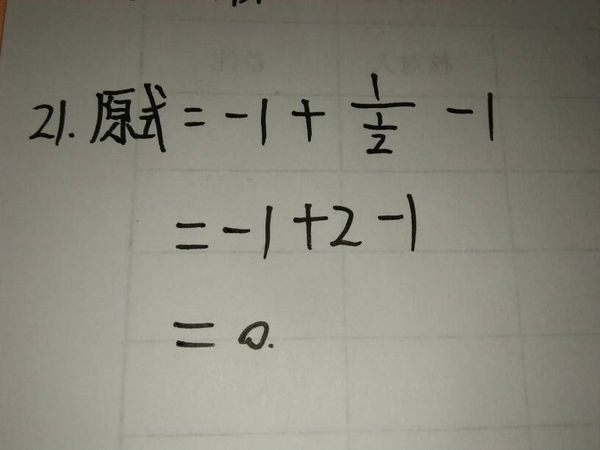 21. 原式 = -1 + 1/(1/2) - 1
= -1 + 2 - 1
= 0.